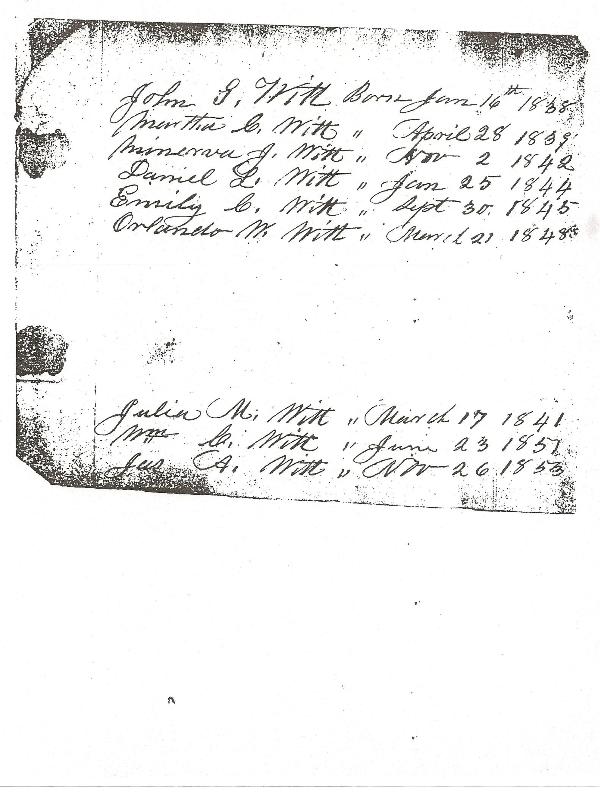 John G. Witt Born Jan 16th 1838
Martha C. Witt " April 28 1839
Minerva J. Witt " Nov 2 1842
Daniel L. Witt " Jan 25 1844
Emily C. Witt " Sept 30. 1845
Orlando W. Witt " March 21 1848
Julia M. Witt " March 17 1841
Wm C. Witt " June 23 1851
Jas A. Witt " Nov 26 1853